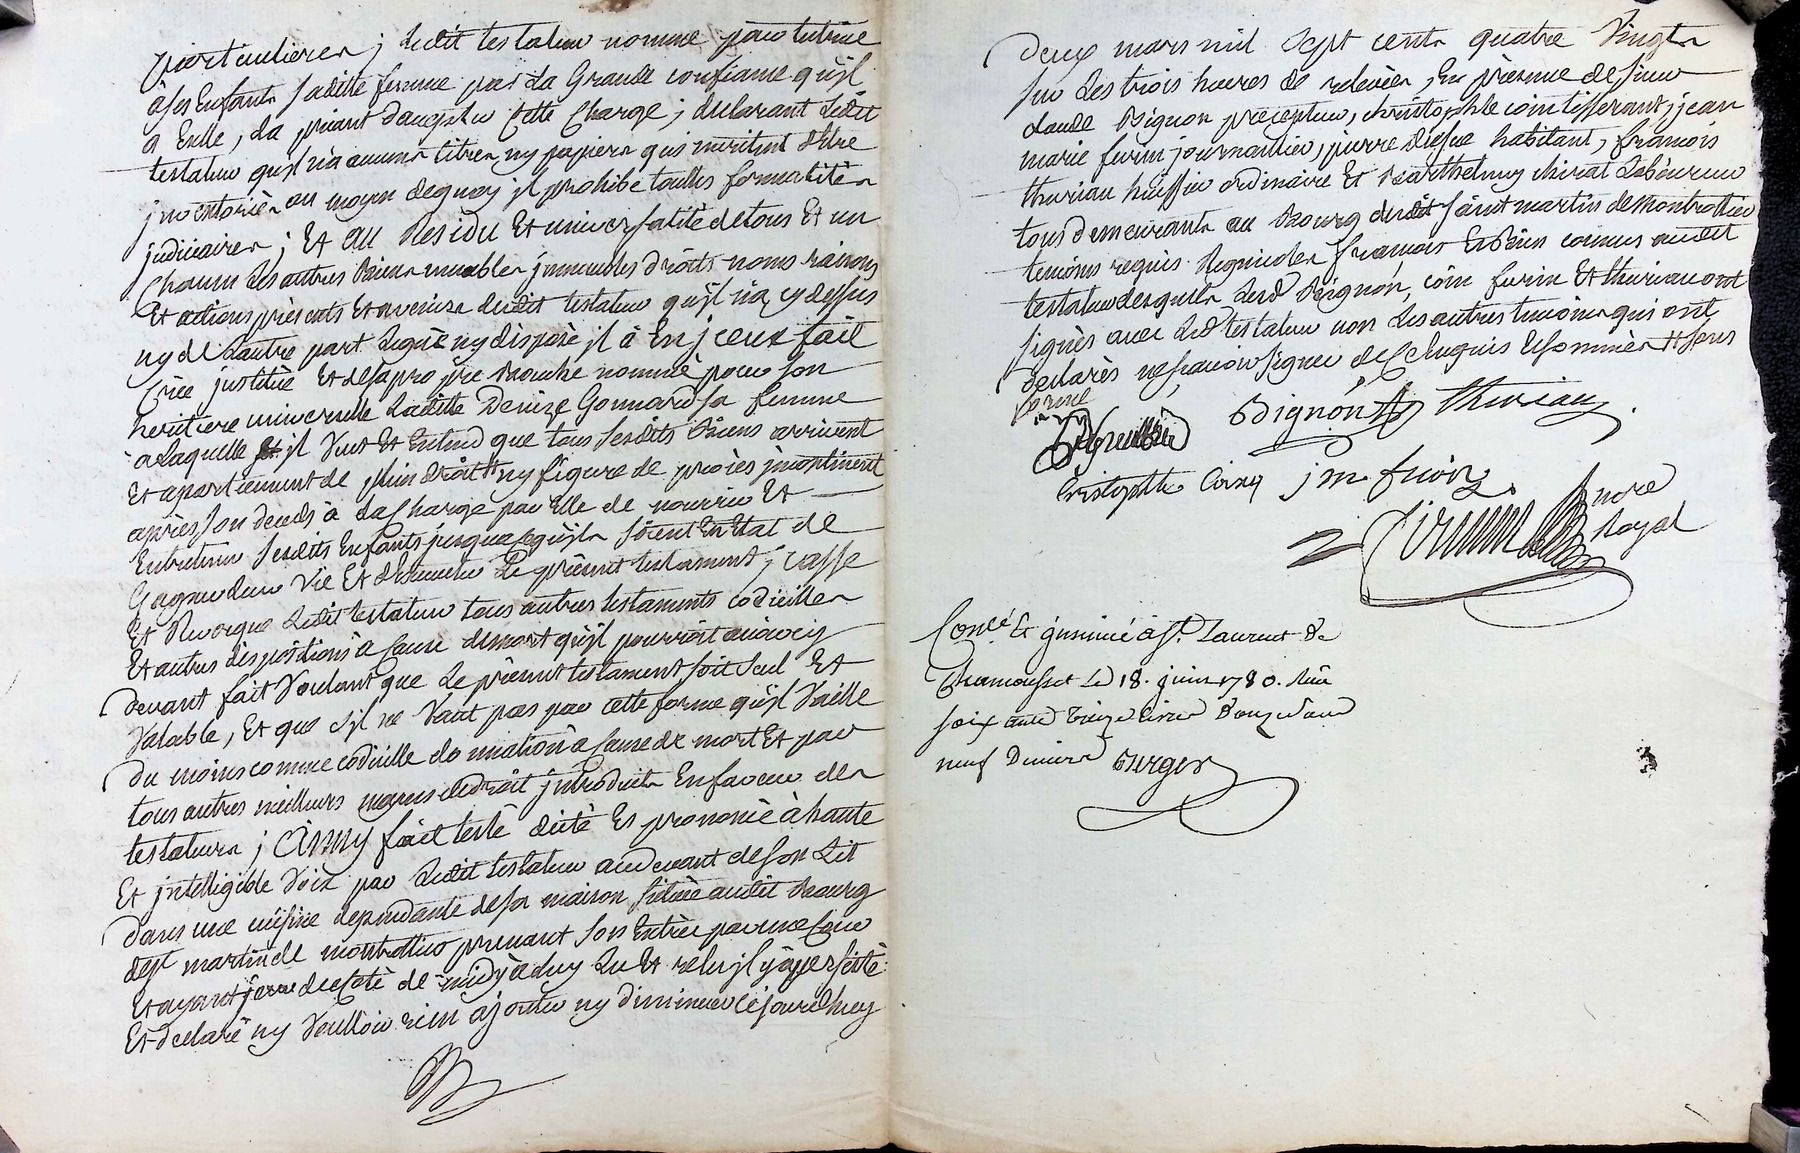 particulieres ; ledit testateur nomme pour tutrice
à ses Enfants saditte femme par la Grande confiance qu'jl
a En elle, la priant d'accepter Cette Charge ; declarant ledit
testateur qu'jl n'a aucuns titres ny papiers qui meritent d'être
jnventoriés au moyen dequoy jl prohibe touttes formalités
judiciaires ; Et au Residu Et universalité de tous Et un
Chacun les autres Biens meubles jmmeubles droits noms raisons
Et actions présents Et avenirs dudit testateur qu'jl n'a cy dessus
ny de l'autre part Legué ny disposé jl à En jceux fait
Créé jnstitué Et de sa propre Bouche nommé pour son
heritiere universelle Laditte Denize Gonnard sa femme
à Laquelle jl Veut Et Entend que tous sesdits Biens arrivent
Et apartiennent de plein droit ny figure de procès jncontinent
après son decès à la Charge par Elle de nourrir Et
Entretenir sesdits Enfants jusqua ce qu'jls soient En Etat de
Gagner leur Vie Et d'executer Le present testament ; Casse
Et Revoque Ledit testateur tous autres testaments codicilles
Et autres dispositions à Cause de mort qu'jl pourroit avoir cy
devant fait Voulant que Le présent testament soit seul Et
Valable, Et que s'jl ne Vaut pas par cette forme qu'jl Vaille
du moins comme codicille donnation à Cause de mort Et par
tous autres meilleurs moyens de droit jntroduits En faveur des
testateurs ; Ainsy fait testé dicté Et prononcé à haute
Et jntelligible Voix par Ledit testateur au devant de son Lit
dans une cuisine dependante de sa maison scituée audit Bourg
de St martin de montrottier prenant son Entrée par une Cour
Et ayant jour du Coté de midy à luy Lu Et relu jl y a persisté
Et declaré ny Voulloir rien ajouter ny diminuer Ce jourd'huy
Deux mars mil sept cents quatre Vingts
sur Les trois heures de relevée, En présence de sieur
claude Bignon precepteur, christophle coin tisserant, jean
marie furin journaillier, pierre habitant, francois
thuriau huissier ordinaire Et Barthelmy chirat Laboureur
tous demeurants au Bourg dudit saint martin de Montrottier
temoins requis Regnicoles francois Et Bien connus audit
testateur desquels Led Bignon, coin furin Et thuriau ont
signés avec Led testateur non Les autres temoins qui ont
declarés ne scavoir signer de Ce Enquis Et sommés
Bignon thuriau
Cristophle Coing j m furin
Nore
Royal
Conlé Et jnsinué à St Laurent de
Chamousset Le 18 juin 1780. Reçu
soixante treize livres douze sous
neuf Deniers Berger